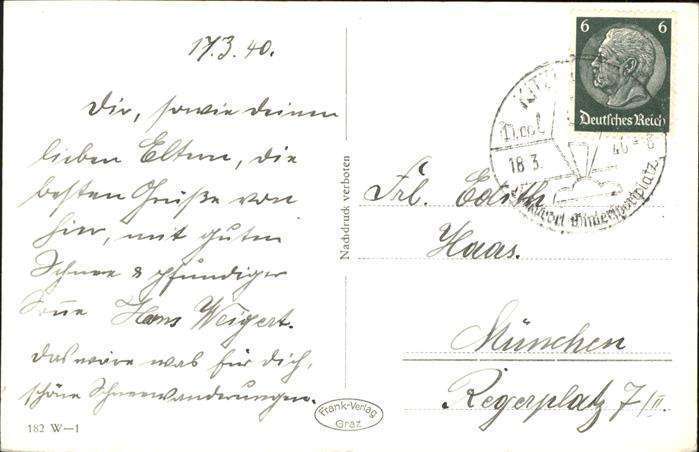 17.3.40.
Dir, sowie deinen
lieben Eltern, die
besten Grüße von
hier, mit guten
Schnee & pfundiger
Sonne Hans Weigert.
Das wäre was für Dich,
schöne Schneewanderungen.
182 W-1
Nachdruck verboten
Frank-Verlag
Graz
6 6
Deutsches Reich
Tirol
18.3. 40 - 8
Wintersportplatz
Frl. Edith
Haas.
München
Regerplatz 7/II.